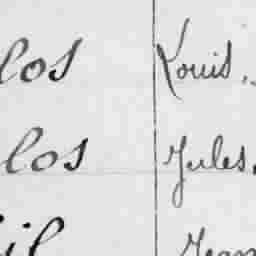 los Louis.
los Jules.
il Jean